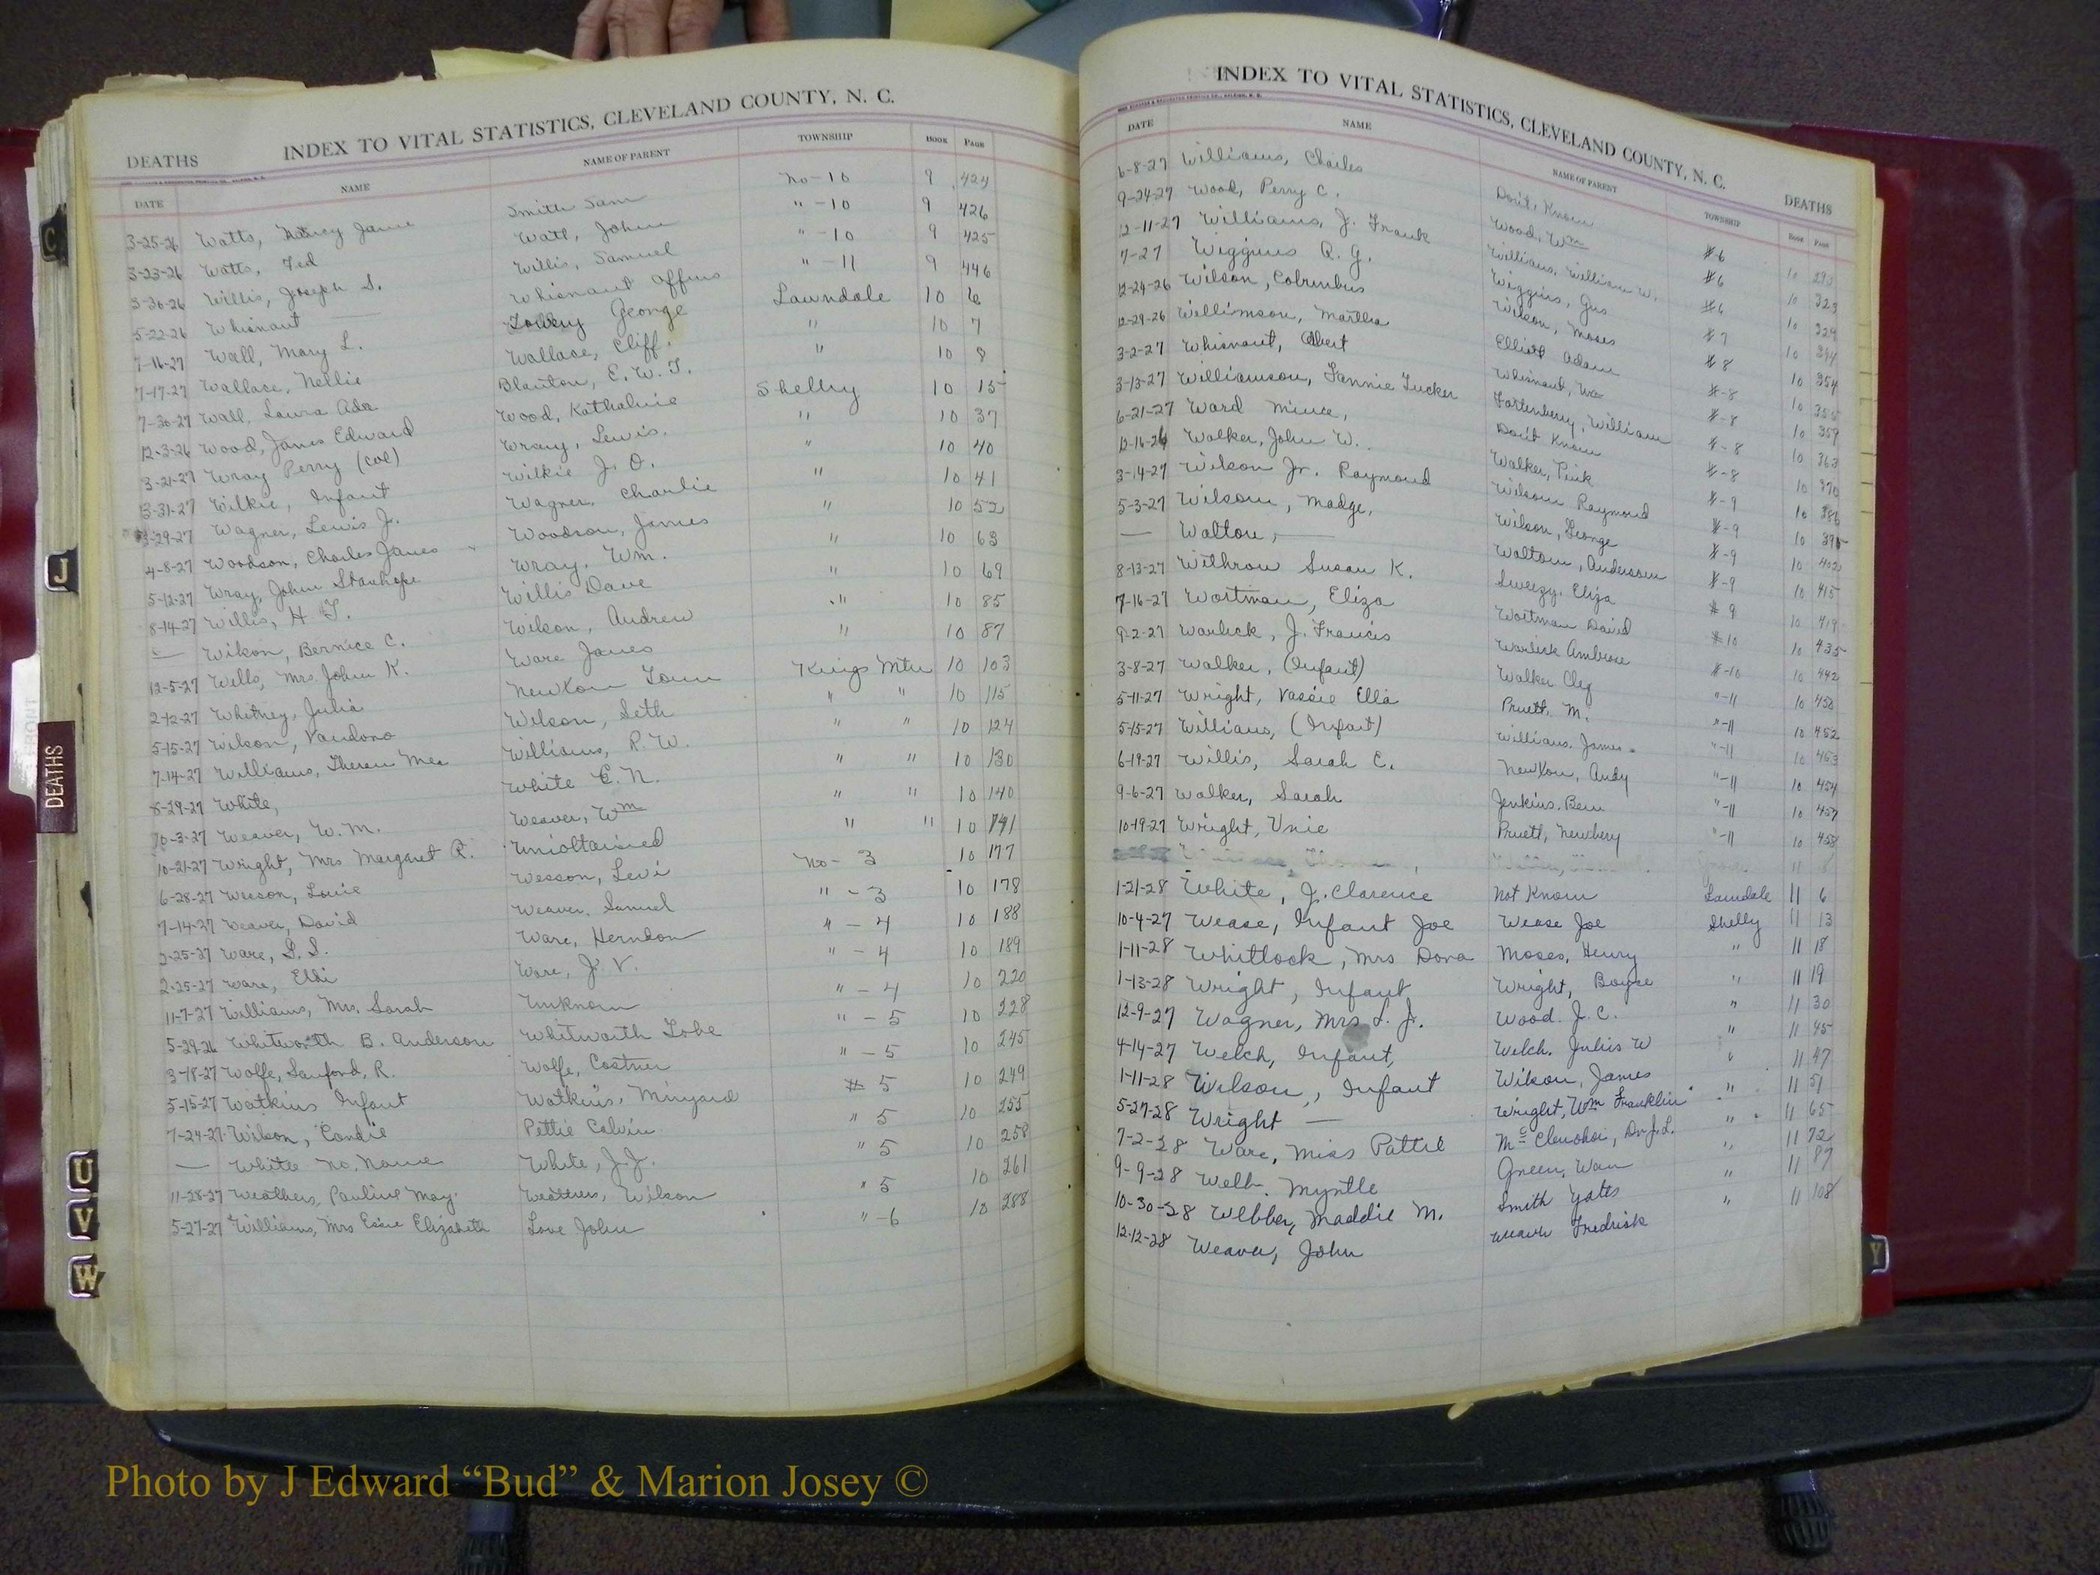 INDEX TO VITAL STATISTICS, CLEVELAND COUNTY, N. C.
DEATHS
DATE NAME NAME OF PARENT TOWNSHIP BOOK PAGE
3-25-26 Watts, Nancy Jane Smith Sam No-10 9 424
3-23-26 Watts, Ted Watt, John "-10 9 426
3-30-26 Willis, Joseph S. Willis, Samuel "-10 9 425
5-22-26 Whisnaut — Whisnaut Affius "-11 9 446
7-16-27 Wall, Mary L. George Lawndale 10 6
7-17-27 Wallace, Nellie Wallace, Cliff. " 10 7
7-30-27 Wall, Laura Ada Blanton, E. W. T. " 10 8
12-3-26 Wood, James Edward Wood, Kathalnie Shelby 10 15
3-21-27 Wray Perry (col) Wray, Lewis. " 10 37
3-31-27 Wilkie, Infant Wilkie J. O. " 10 40
3-29-27 Wagner, Lewis J. Wagner, Charlie " 10 41
4-8-27 Woodson, Charles James Woodson, James " 10 52
5-12-27 Wray, John Stanhope Wray, Wm. " 10 63
8-14-27 Willis, H. T. Willis Dave " 10 69
— Wilson, Bernice C. Wilson, Andrew " 10 85
12-5-27 Wells, Mrs. John K. Ware James " 10 87
2-12-27 Whitney, Julia Newton Tom Kings Mtn 10 103
5-15-27 Wilson, Vandora Wilson, Seth " " 10 115
7-14-27 Williams, Theran Mea Williams, R. W. " " 10 124
8-29-27 White, White E. N. " " 10 130
10-3-27 Weaver, W. M. Weaver, Wm " " 10 140
10-21-27 Wright, Mrs Margaret R. Uniobtained " " 10 141
6-28-27 Wesson, Louie Wesson, Levi No-3 10 177
7-14-27 Weaver, David Weaver, Samuel "-3 10 178
2-25-27 Ware, S. S. Ware, Herndon "-4 10 188
2-25-27 Ware, Elli Ware, J. V. "-4 10 189
11-7-27 Williams, Mrs. Sarah Unknown "-4 10 220
5-29-26 Whitworth B. Anderson Whitworth Tobe "-5 10 228
3-18-27 Wolfe, Sanford, R. Wolfe, Costner "-5 10 245
5-15-27 Watkins Infant Watkins, Minyard # 5 10 249
7-24-27 Wilson, Candie Pettie Calvin " 5 10 255
— White No. Name White, J. J. " 5 10 258
11-28-27 Weathers, Pauline May. Weathers, Wilson " 5 10 261
5-27-27 Williams, Mrs Essie Elizabeth Love John "-6 10 288
INDEX TO VITAL STATISTICS, CLEVELAND COUNTY, N. C.
DEATHS
DATE NAME NAME OF PARENT TOWNSHIP BOOK PAGE
6-8-27 Williams, Charles Don't Know #6 10 292
9-24-27 Wood, Perry C. Wood, Wm #6 10 323
12-11-27 Williams, J. Frank Williams, William W. #6 10 329
7-27 Wiggins R. G. Wiggins, Gus #7 10 344
12-24-26 Wilson, Columbus Wilson, Moses #8 10 354
12-29-26 Willimson, Martha Elliott Adam #-8 10 355
3-2-27 Whisnaut, Albert Whisnaut, Wm #-8 10 359
3-13-27 Williamson, Fannie Tucker Fortenberry, William #-8 10 363
6-21-27 Ward Mince, Don't Know #-8 10 370
12-16-26 Walker, John W. Walker, Pink #-9 10 386
3-14-27 Wilson Jr. Raymond Wilson Raymond #-9 10 395
5-3-27 Wilson, Madge, Wilson, George #-9 10 402
— Walton, — Walton, Anderson #-9 10 415
8-13-27 Withrow Susan K. Swezy, Eliza # 9 10 419
7-16-27 Wortman, Eliza Wortman David #10 10 435
9-2-27 Warlick, J. Francis Warlick Ambrose #-10 10 442
3-8-27 Walker, (Infant) Walker Cleg "-11 10 450
5-11-27 Wright, Vassie Ella Pruett, M. "-11 10 452
5-15-27 Williams, (Infant) Williams, James. "-11 10 453
6-19-27 Willis, Sarah C. Newton, Andy "-11 10 454
9-6-27 Walker, Sarah Jenkins, Ben "-11 10 457
10-19-27 Wright, Unie Pruett, Newbery "-11 10 458
1-21-28 White, J. Clarence Not Known Lawndale 11 6
10-4-27 Wease, Infant Joe Wease Joe Shelby 11 13
1-11-28 Whitlock, Mrs Dora Moses, Henry " 11 18
1-13-28 Wright, Infant Wright, Boyce " 11 19
12-9-27 Wagner, Mrs L. J. Wood. J. C. " 11 30
4-14-27 Welch, Infant, Welch. Julius W " 11 45
1-11-28 Wilson,, Infant Wilson, James " 11 47
5-27-28 Wright — Wright, Wm Franklin " 11 51
7-2-28 Ware, Miss Pattie Dr. J. L. " 11 65
9-9-28 Webb. Myrtle Green, Wan " 11 72
10-30-28 Webber, Maddie M. Smith Yates " 11 87
12-12-28 Weaver, John Weaver Fredrisk " 11 108
C
J
DEATHS
U
V
W
Y
Photo by J Edward “Bud” & Marion Josey ©